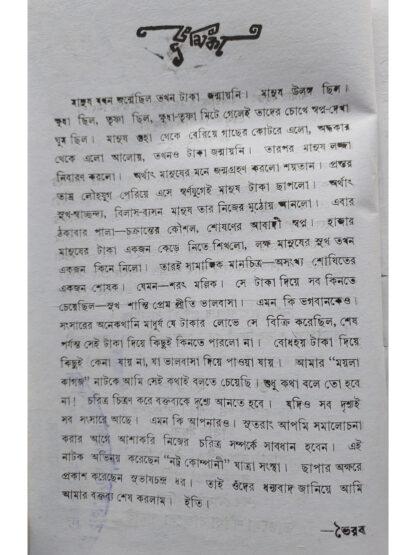 ভূমিকা
মানুষ যখন জন্মেছিল তখন টাকা জন্মায়নি। মানুষ উলঙ্গ ছিল।
ক্ষুধা ছিল, তৃষ্ণা ছিল, ক্ষুধা-তৃষ্ণা মিটে গেলেই তাদের চোখে স্বপ্ন-দেখা
ঘুম ছিল। মানুষ গুহা থেকে বেরিয়ে গাছের কোটরে এলো, অন্ধকার
থেকে এলো আলোয়, তখনও টাকা জন্মায়নি। তারপর মানুষ লজ্জা
নিবারণ করলো। অর্থাৎ মানুষের মনে জন্মগ্রহণ করলো শয়তান। প্রস্তর
তাম্র লৌহযুগ পেরিয়ে এসে স্বর্ণযুগেই মানুষ টাকা ছাপলো। অর্থাৎ
সুখ-স্বাচ্ছন্দ্য, বিলাস-ব্যসন মানুষ তার নিজের মুঠোয় আনলো। এবার
ঠকাবার পালা—চক্রান্তের কৌশল, শোষণের আবাদী স্বপ্ন। হাজার
মানুষের টাকা একজন কেড়ে নিতে শিখলো, লক্ষ মানুষের সুখ তখন
একজন কিনে নিলো। তারই সামাজিক মানচিত্র—অসংখ্য শোষিতের
একজন শোষক। যেমন—শরৎ মল্লিক। সে টাকা দিয়ে সব কিনতে
চেয়েছিল—সুখ শান্তি প্রেম প্রীতি ভালবাসা। এমন কি ভগবানকেও।
সংসারের অনেকখানি মাধুর্য যে টাকার লোভে সে বিক্রি করেছিল, শেষ
পর্যন্ত সেই টাকা দিয়ে কিছুই কিনতে পারলো না। বোধহয় টাকা দিয়ে
কিছুই কেনা যায় না, যা ভালবাসা দিয়ে পাওয়া যায়। আমার “ময়লা
কাগজ” নাটকে আমি সেই কথাই বলতে চেয়েছি। শুধু কথা বলে তো হবে
না! চরিত্র চিত্রণ করে বক্তব্যকে দৃশ্যে আনতে হবে। যদিও সব দৃশ্যই
সব সংসারে আছে। এমন কি আপনারও। সুতরাং আপনি সমালোচনা
করার আগে আশাকরি নিজের চরিত্র সম্পর্কে সাবধান হবেন। এই
নাটক অভিনয় করেছেন “নট্ট কোম্পানী” যাত্রা সংস্থা। ছাপার অক্ষরে
প্রকাশ করেছেন সুভাষচন্দ্র ধর। তাই ওঁদের ধন্যবাদ জানিয়ে আমি
আমার বক্তব্য শেষ করলাম। ইতি।
—ভৈরব